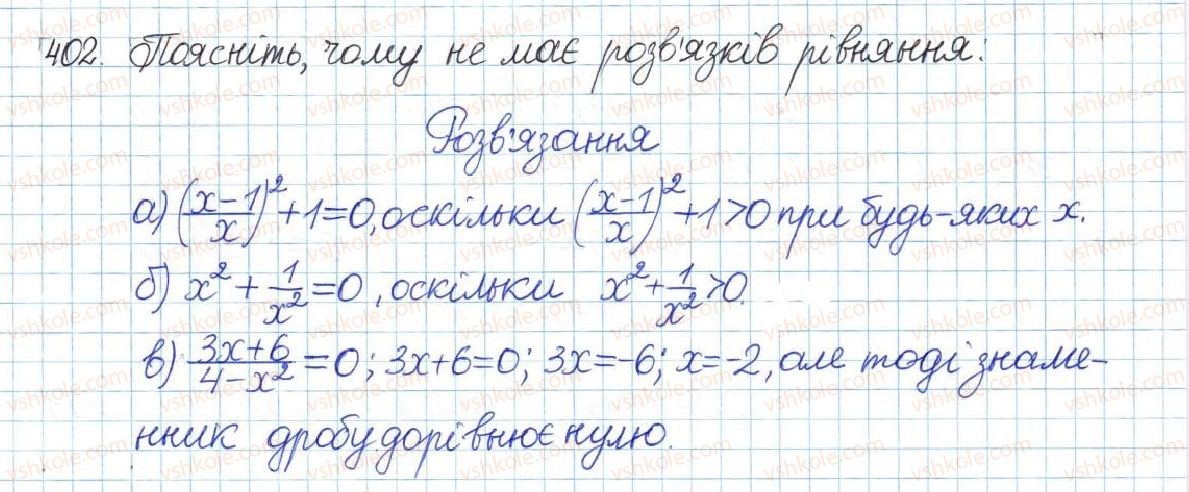 402. Поясніть, чому не має розв'язків рівняння:
Розв'язання
а) ((x-1)/x)² + 1 = 0, оскільки ((x-1)/x)² + 1 > 0 при будь-яких x.
б) x² + 1/x² = 0, оскільки x² + 1/x² > 0.
в) (3x+6)/(4-x²) = 0; 3x+6=0; 3x=-6; x=-2, але тоді знаме-
нник дробу дорівнює нулю.